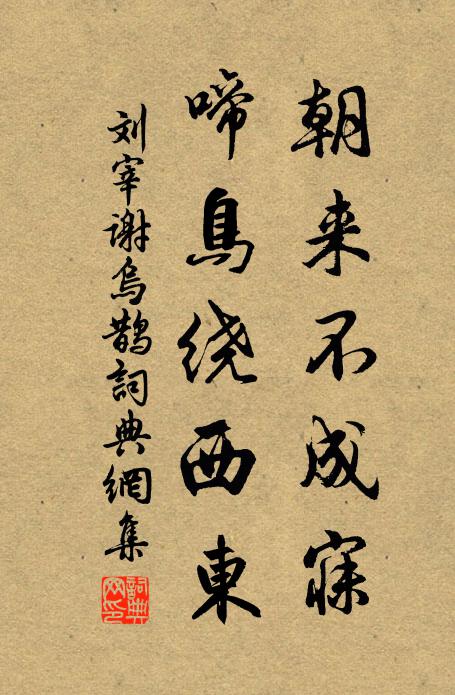 朝来不成寐
啼鳥绕西東
刘宰谢烏鹊詞典網集
詞典网印